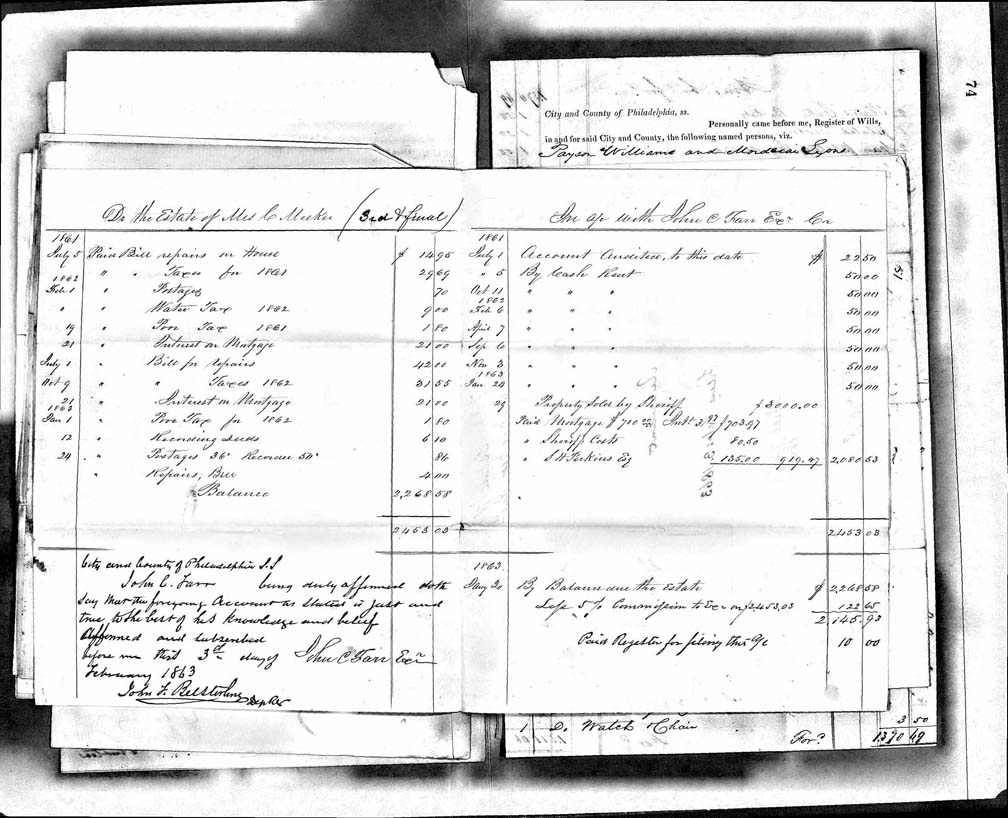 74
City and County of Philadelphia, ss.
Personally came before me, Register of Wills,
in and for said City and County, the following named persons, viz.
Payson Williams and Mordecai Lyons
Dr the Estate of Mrs C Meeker (3rd & final)
1861
July 5 Paid Bill repairs on House $ 14 95
" " Taxes for 1861 29 69
1862
Feb 1 " Postages 70
" " Water Tax 1862 9 00
19 " Poor Tax 1861 1 80
21 " Interest on Mortgage 21 00
July 1 " Bill for repairs 42 00
Oct 9 " " Taxes 1862 31 55
21 " Interest on Mortgage 21 00
1863
Jan 1 " Poor Tax for 1862 1 80
12 " Recording deeds 6 10
24 " Postages 36 Recorder 50 86
" Repairs, 4 00
Balance 2,268 58
2453 03
City and County of Philadelphia S.S
John C. Farr being duly affirmed doth
say that the foregoing Account as stated is just and
true to the best of his knowledge and belief
Affirmed and subscribed
before me this 3rd day of John C Farr Exr
February 1863
John F. Belsterling Dep Rr
In a/c with John C Farr Exr Cr
1861
July 1 Account Audited, to this date $ 22 50
" 5 By Cash Rent 50 00
Oct 11 " " " 50 00
1862
Feb 6 " " " 50 00
April 7 " " " 50 00
Sep 6 " " " 50 00
Nov 3 " " " 50 00
1863
Jan 24 " " " 50 00
29 Property Sold by Sheriff $3000.00
Paid Mortgage $700 00 Int 3 97 $703.97
" Sheriff Costs 80.50
" S W Perkins Esq 135.00 919.47 2,080 53
2453 03
1863
Jany 30 By Balance due the Estate $ 2,268 58
Less 5 p% Commission to Exr on $2453,03 122 65
2 145.93
Paid Register for filing this a/c 10 00
1 Do. Watch Chain 3 50
Ford. 1370 49